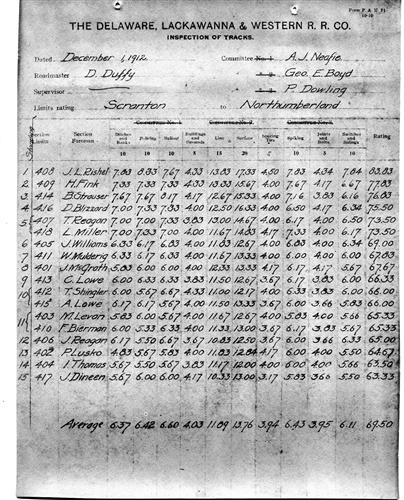 Form P A H 71
10-10
THE DELAWARE, LACKAWANNA & WESTERN R. R. CO.
INSPECTION OF TRACKS.
Dated December 1, 1912 Committee No. 1 A. J. Neafie
Roadmaster D. Duffy Geo. E. Boyd
Supervisor P. Dowling
Limits rating Scranton to Northumberland
Section Limits Section Foreman Ditches and Banks Policing Ballast Buildings and Grounds Line Surface Spacing Ties Spiking Joints and Bolts Switches and Sidings Rating
10 10 10 5 15 20 5 10 5 10 100
1 408 J. L. Rishel 7.83 8.33 7.67 4.33 13.83 17.33 4.50 7.83 4.34 7.84 83.83
2 409 H. Fink 7.33 7.33 7.33 4.33 13.33 15.67 4.00 7.67 4.17 6.67 77.83
3 414 B. Strauser 7.67 7.67 8.17 4.17 12.67 15.33 4.00 7.16 3.83 6.16 76.83
4 416 D. Blizzard 7.00 7.33 7.33 4.00 12.50 16.33 4.00 6.50 4.17 6.34 75.50
5 407 T. Reagan 7.00 7.00 7.33 3.83 13.00 14.67 4.00 6.17 4.00 6.50 73.50
418 L. Miller 7.00 7.33 7.00 4.00 11.67 14.83 4.17 7.33 4.00 6.17 73.50
6 405 J. Williams 6.33 6.17 6.83 4.00 11.83 12.67 4.00 6.83 4.00 6.34 69.00
7 411 W. Mulderig 6.33 6.17 6.83 4.00 11.67 13.33 4.00 6.00 4.00 6.00 67.83
8 401 J. McGrath 5.83 6.00 6.00 4.00 12.33 13.33 4.17 6.17 4.17 5.67 67.67
9 413 C. Lowe 6.00 6.33 6.33 3.83 11.50 12.67 3.67 6.17 3.83 6.00 66.33
10 412 T. Shingler 6.00 5.67 6.67 4.33 11.00 12.17 4.00 6.33 3.83 6.00 66.00
415 A. Lowe 6.17 6.17 5.67 4.00 11.50 13.33 3.67 6.00 3.66 5.83 66.00
11 403 M. Levan 5.83 6.00 5.67 4.00 11.67 12.67 4.00 5.83 4.00 5.66 65.33
410 F. Bierman 6.00 5.33 6.33 4.00 11.33 13.00 3.67 6.17 3.83 5.67 65.33
12 406 J. Reagan 6.17 5.50 6.67 3.67 10.83 12.50 3.67 6.00 3.66 6.33 65.00
13 402 P. Lusko 4.83 5.67 5.83 4.00 11.83 12.84 4.17 6.00 4.00 5.50 64.67
14 404 I. Thomas 5.67 5.50 5.67 3.83 11.17 12.00 4.00 6.00 4.00 5.66 63.50
15 417 J. Dineen 5.67 6.00 6.00 4.17 10.33 13.00 3.17 5.83 3.66 5.50 63.33
Average 6.37 6.42 6.60 4.03 11.89 13.76 3.94 6.43 3.95 6.11 69.50